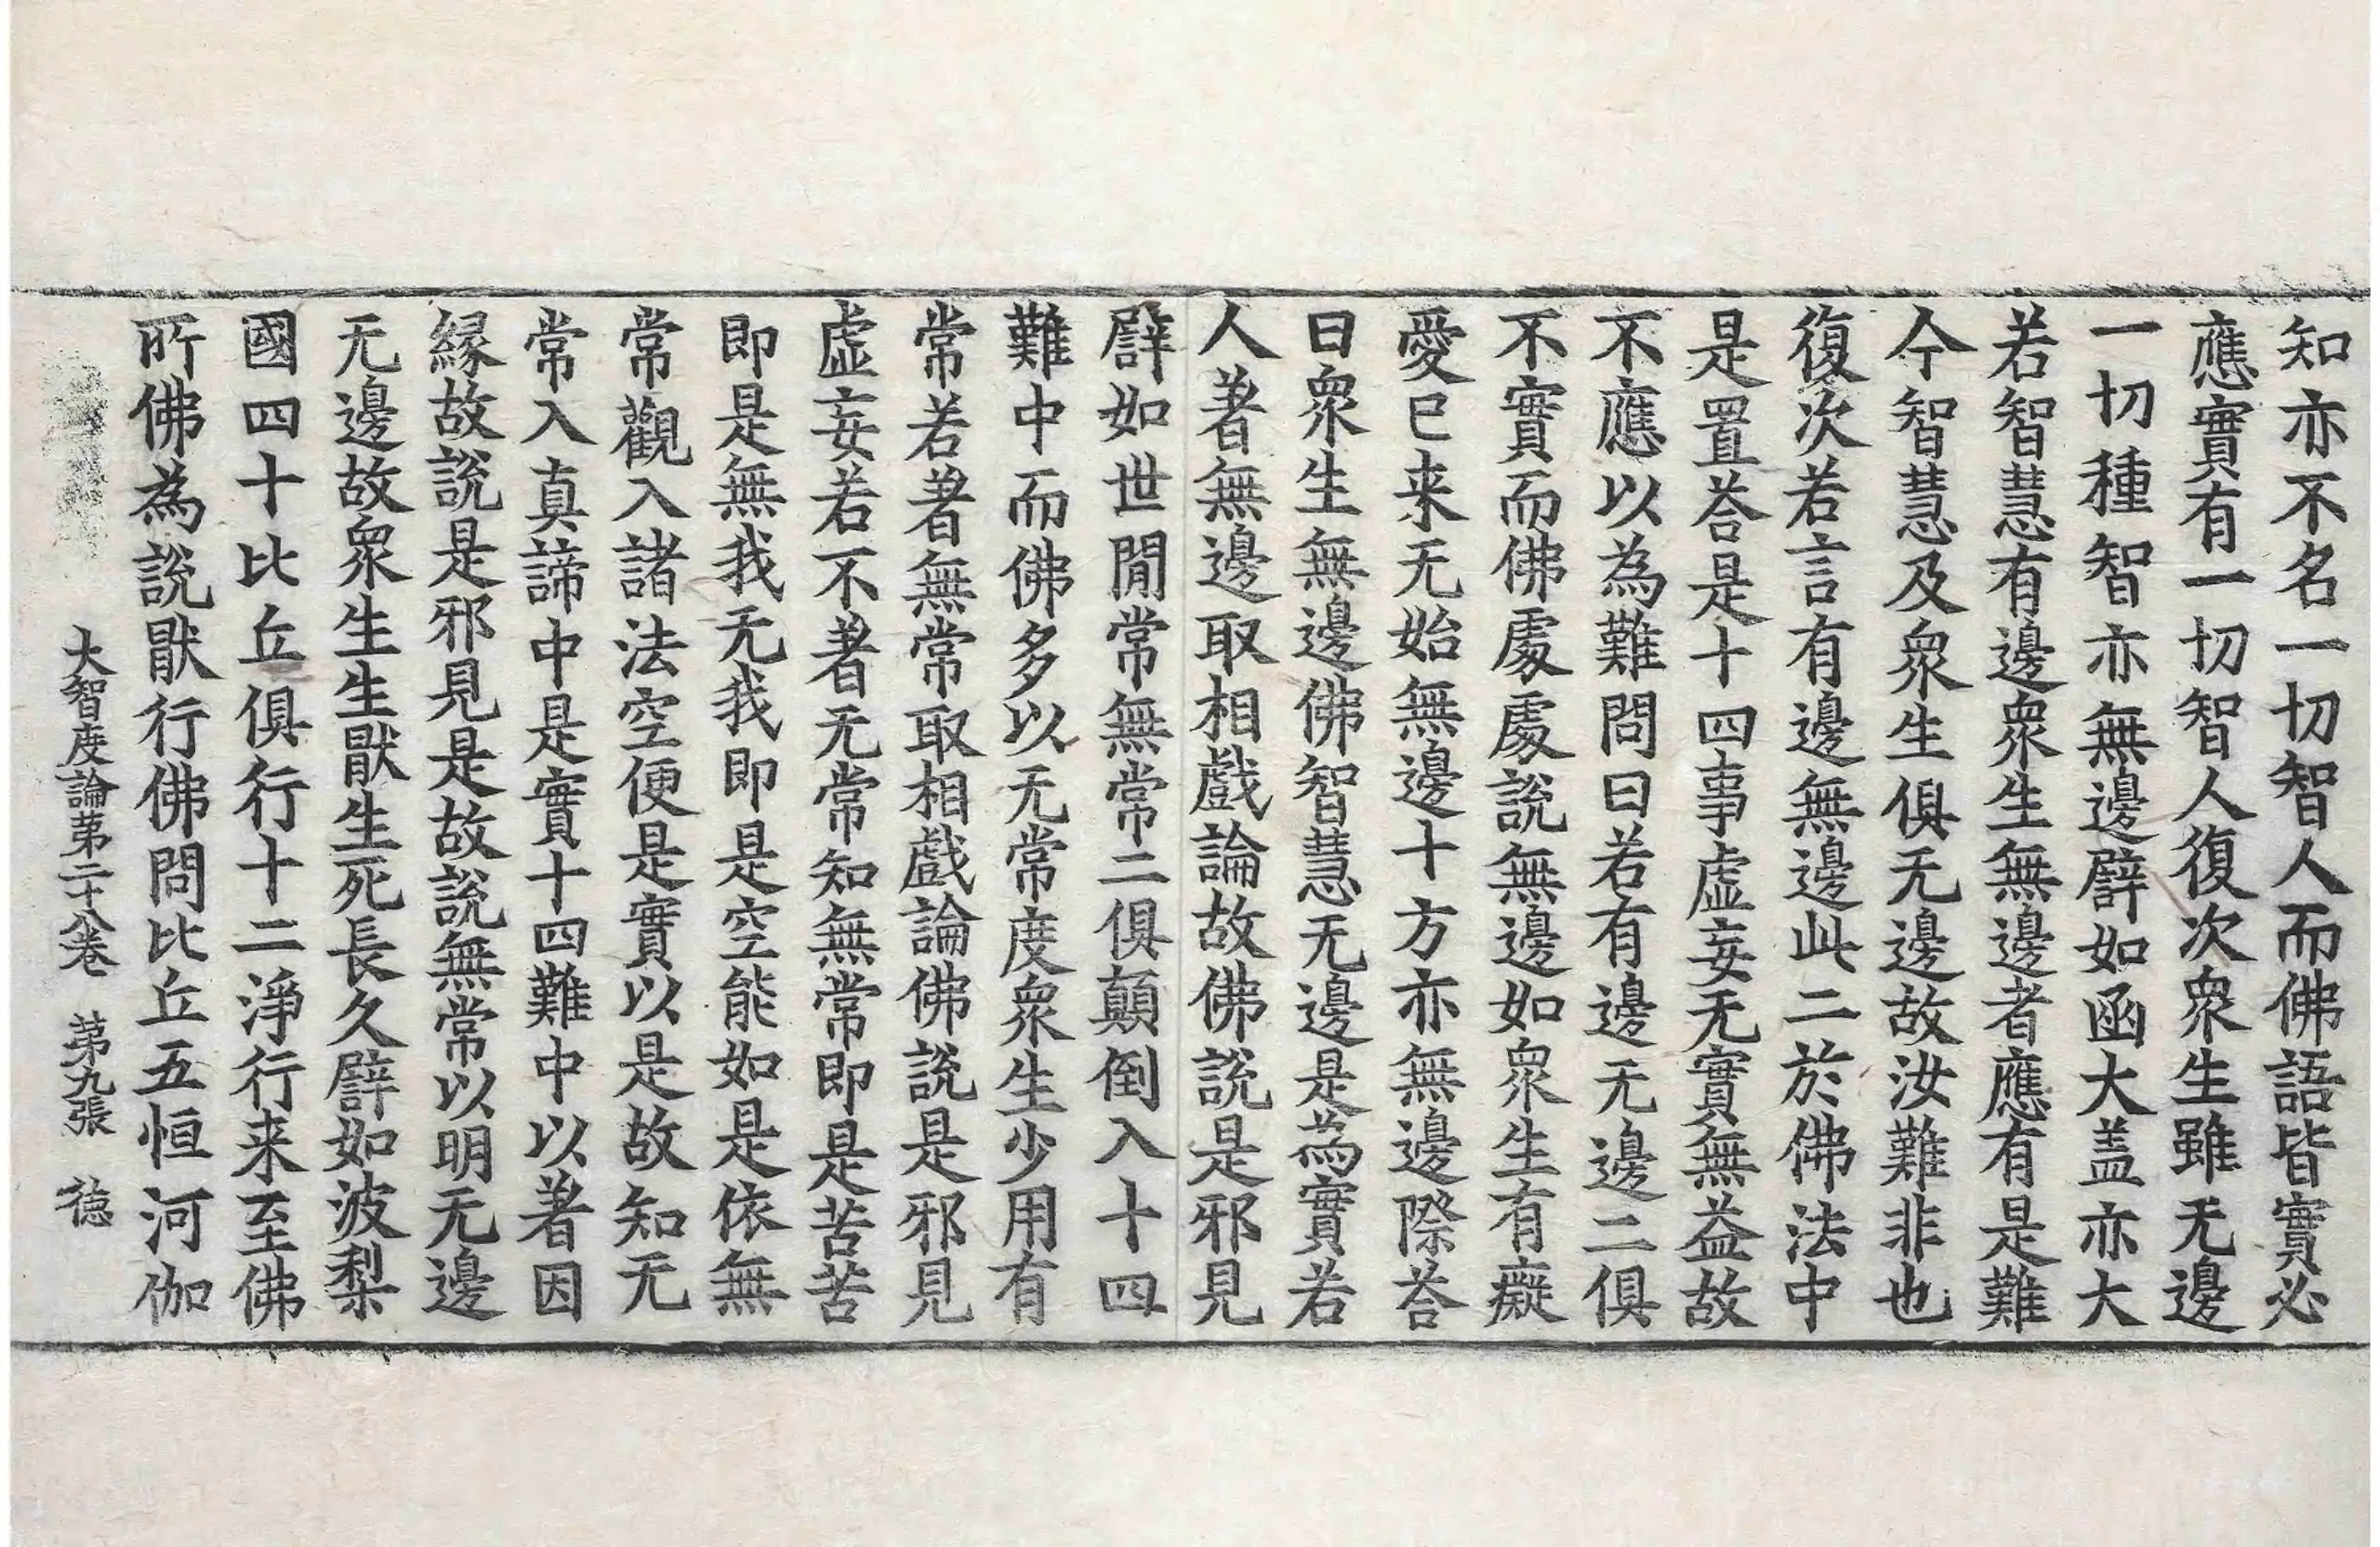 知亦不名一切智人而佛語皆實必
應實有一切智人復次衆生雖无邊
一切種智亦無邊譬如函大盖亦大
若智慧有邊衆生無邊者應有是難
今智慧及衆生俱无邊故汝難非也
復次若言有邊無邊此二於佛法中
是置荅是十四事虛妄无實無益故
不應以為難問曰若有邊无邊二俱
不實而佛處處說無邊如衆生有癡
愛已来无始無邊十方亦無邊際荅
曰衆生無邊佛智慧无邊是為實若
人著無邊取相戲論故佛說是邪見
譬如世閒常無常二俱顛倒入十四
難中而佛多以无常度衆生少用有
常若著無常取相戲論佛說是邪見
虛妄若不著无常知無常即是苦苦
即是無我无我即是空能如是依無
常觀入諸法空便是實以是故知无
常入真諦中是實十四難中以著因
緣故說是邪見是故說無常以明无邊
无邊故衆生生猒生死長久譬如波梨
國四十比丘俱行十二淨行来至佛
所佛為說猒行佛問比丘五恒河伽
大智度論第二十八卷 第九張 德